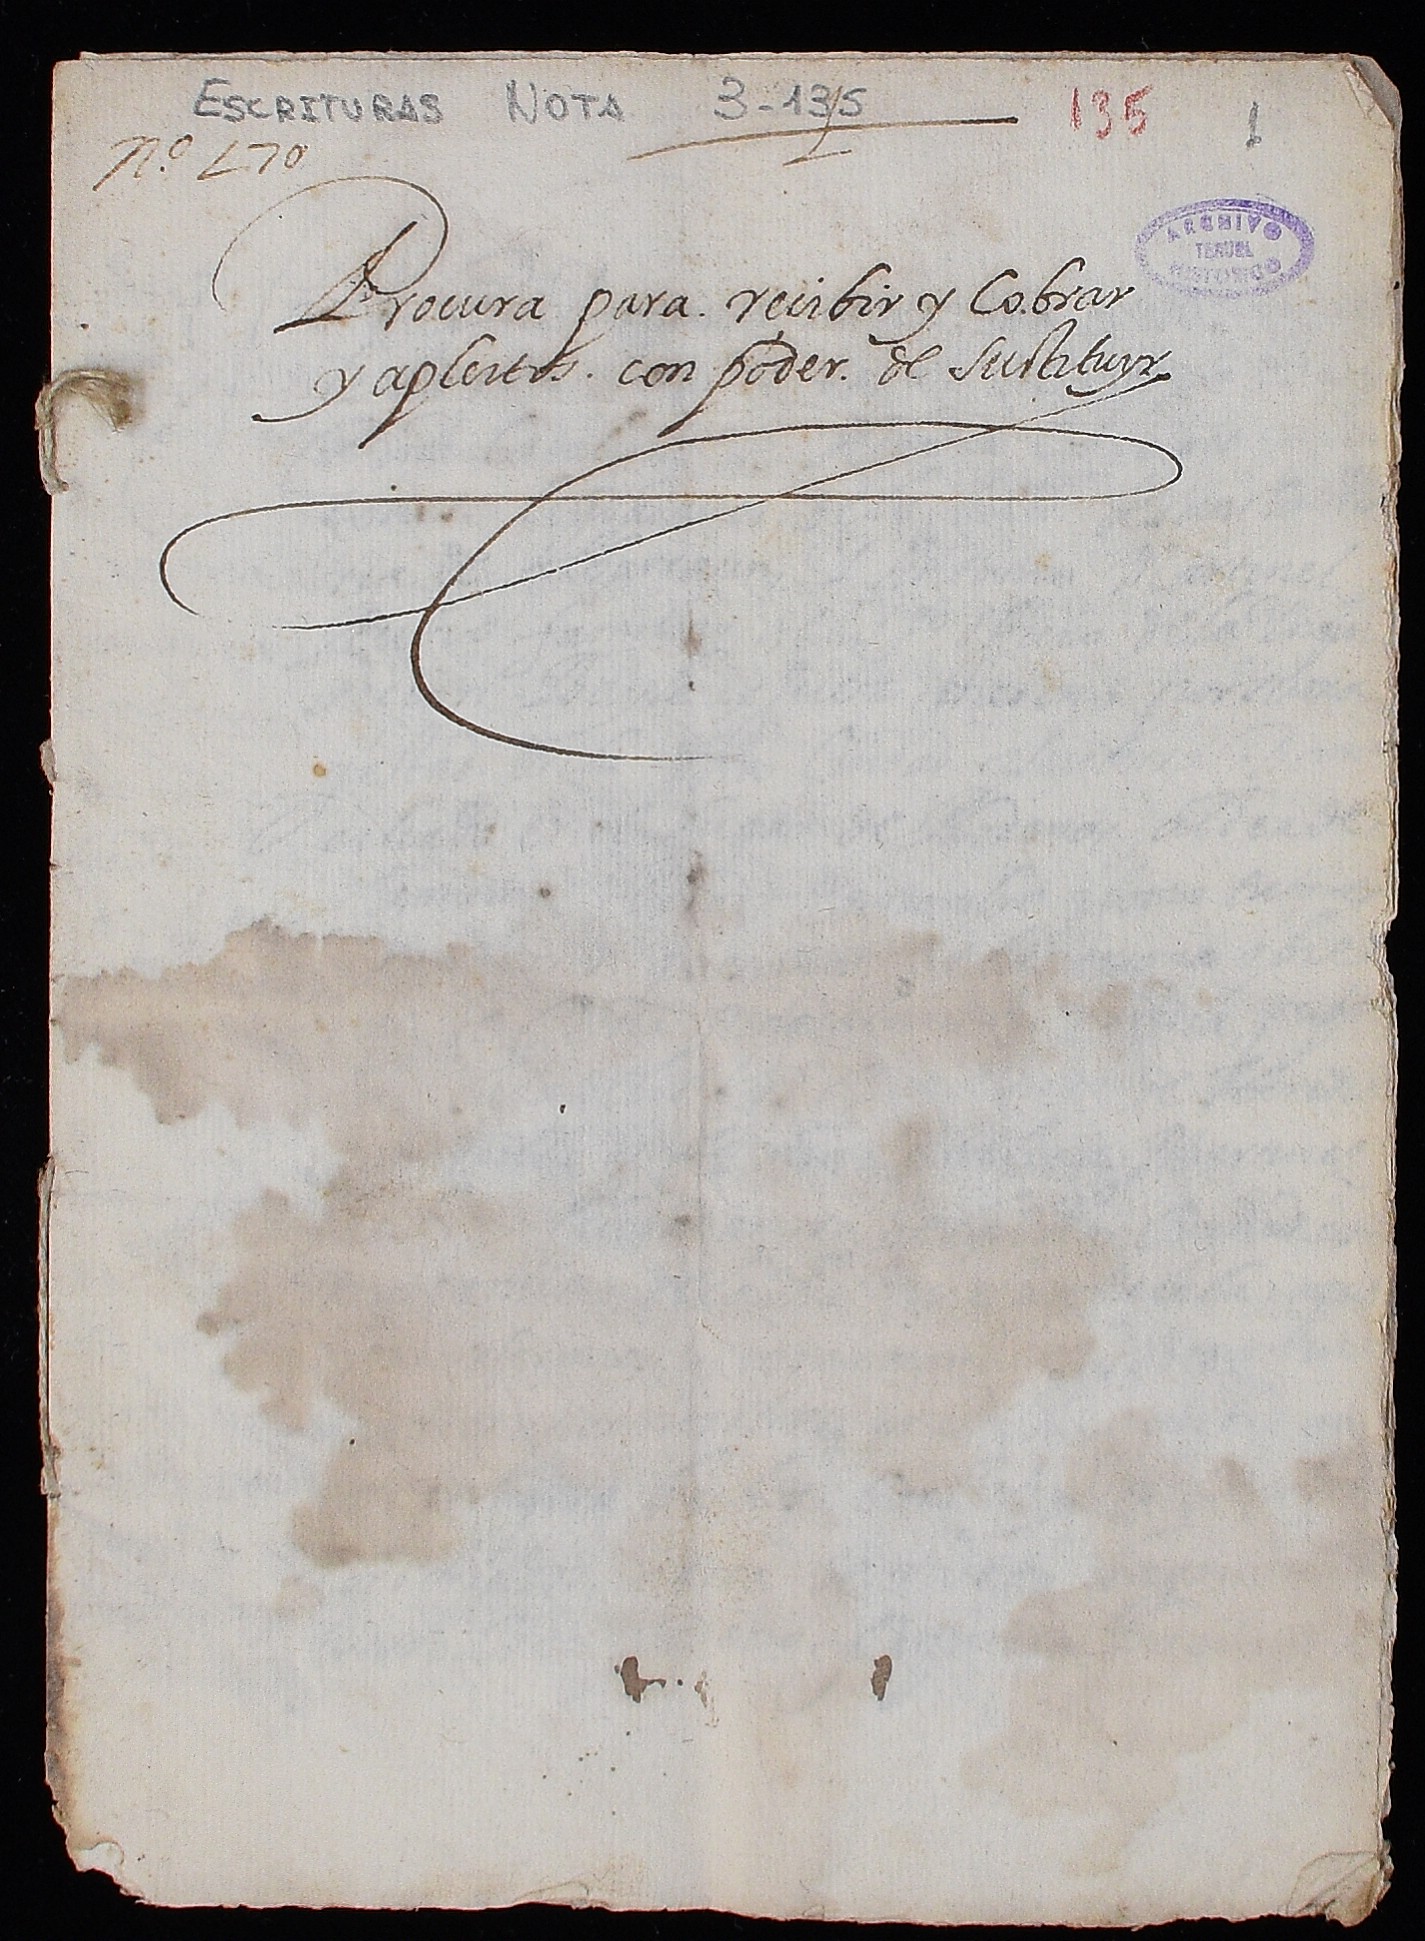 ESCRITURAS NOTA 3-135 135 1
N.º 170
ARCHIVO
TERUEL
HISTORICO
Procura para. recibir y Cobrar
y apleitos. con poder. de sustituyr